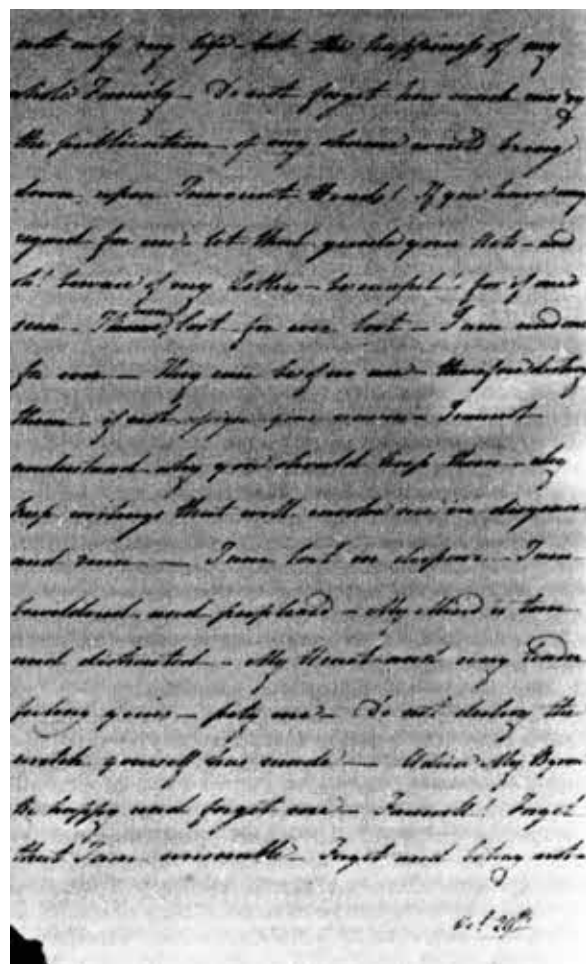 not only my life - but the happiness of my
whole Family - Do not forget how much
the publication of my shame would bring
down upon Innocent Heads! If you have any
regard for me - let that guide your Acts - and
oh! beware of my Letters - be careful! for if
seen - I lost for ever lost - I am
for ever — They can be of no use - therefore destroy
them - if not - I cannot
understand why you should keep them - why
keep writings that will involve me in disgrace
and ruin — I am lost in despair - I am
bewildered and perplexed - My Mind is torn
and distracted - My Heart and every tender
feeling yours - pity me - Do not destroy the
wretch yourself has made — Adieu My Byron
Be happy and forget me - Farewell! Forget
that I am miserable - Forget and betray not
Oct 29th